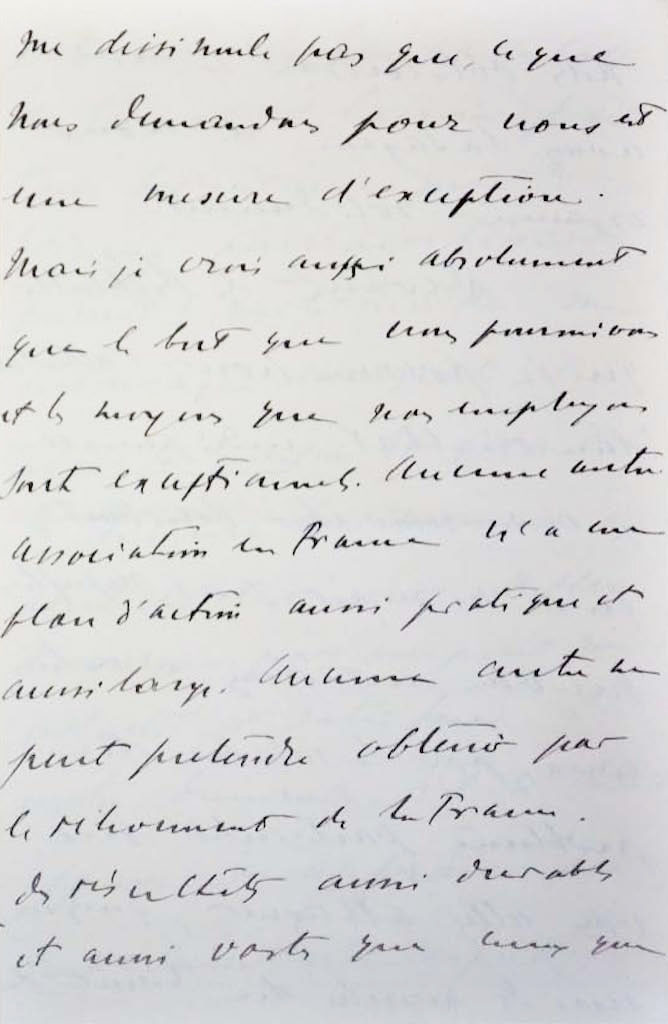 me dissimule pas que, ce que
nous demandons pour nous est
une mesure d'exception.
Mais je crois aussi absolument
que le but que nous poursuivons
et les moyens que nous employons
sont exceptionnels. Aucune autre
association en France n'a un
plan d'action aussi pratique et
aussi large. Aucune autre ne
peut prétendre obtenir par
le de la France.
des résultats aussi durables
et aussi vastes que ceux que